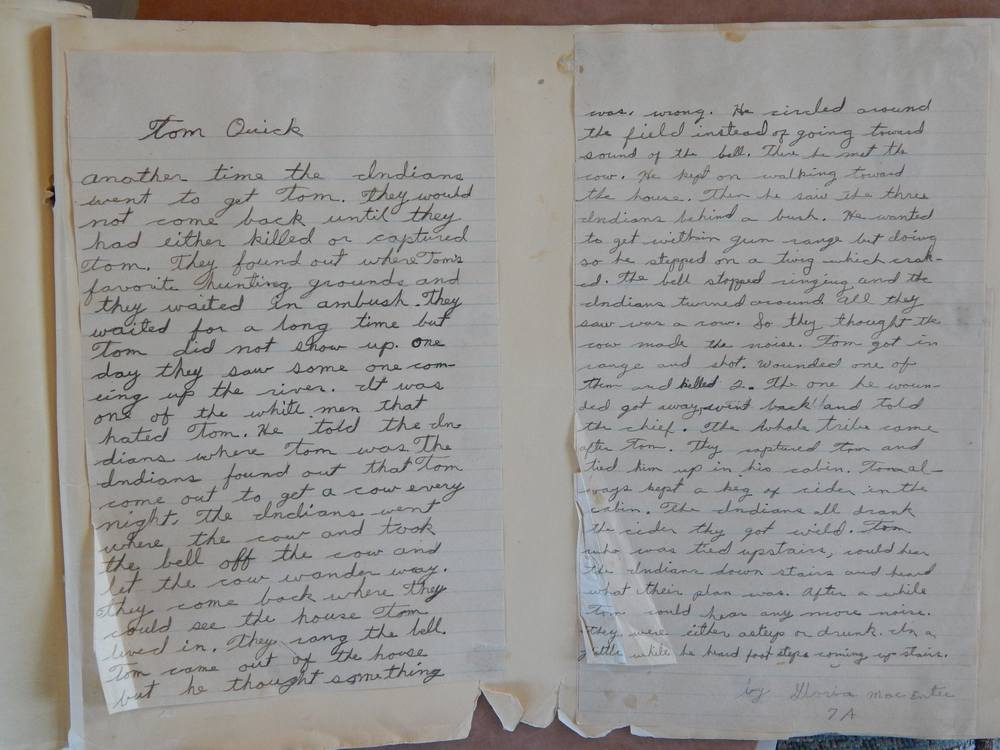 Tom Quick
another time the Indians
went to get Tom. They would
not come back until they
had either killed or captured
Tom. They found out where Tom's
favorite hunting grounds and
they waited in ambush. They
waited for a long time but
Tom did not show up. one
day they saw some one com-
ing up the river. It was
one of the white men that
hated Tom. He told the In
dians where Tom was. The
Indians found out that Tom
come out to get a cow every
night. The Indians went
where the cow and took
the bell off the cow and
let the cow wander way.
They come back where they
could see the house Tom
lived in. They rang the bell.
Tom came out of the house
but he thought something
was wrong. He circled around
the field instead of going toward
sound of the bell. There he met the
cow. He kept on walking toward
the house. Then he saw the three
Indians behind a bush. He wanted
to get within gun range but doing
so he stepped on a twig which crak-
ed. The bell stopped ringing and the
Indians turned around All they
saw was a cow. So they thought the
cow made the noise. Tom got in
range and shot. Wounded one of
them and killed 2. The one he woun-
ded got away, went back and told
the chief. The whole tribe came
after Tom. They captured Tom and
tied him up in his cabin. Tom al-
ways kept a keg of cider in the
cabin. The Indians all drank
the cider they got wild. Tom
who was tied upstairs, could hear
the Indians down stairs and heard
what their plan was. After a while
Tom could hear any more noise.
They were either asleep or drunk. In a
little while he heard foot steps coming up stairs.
by Gloria Mac Entee
7A